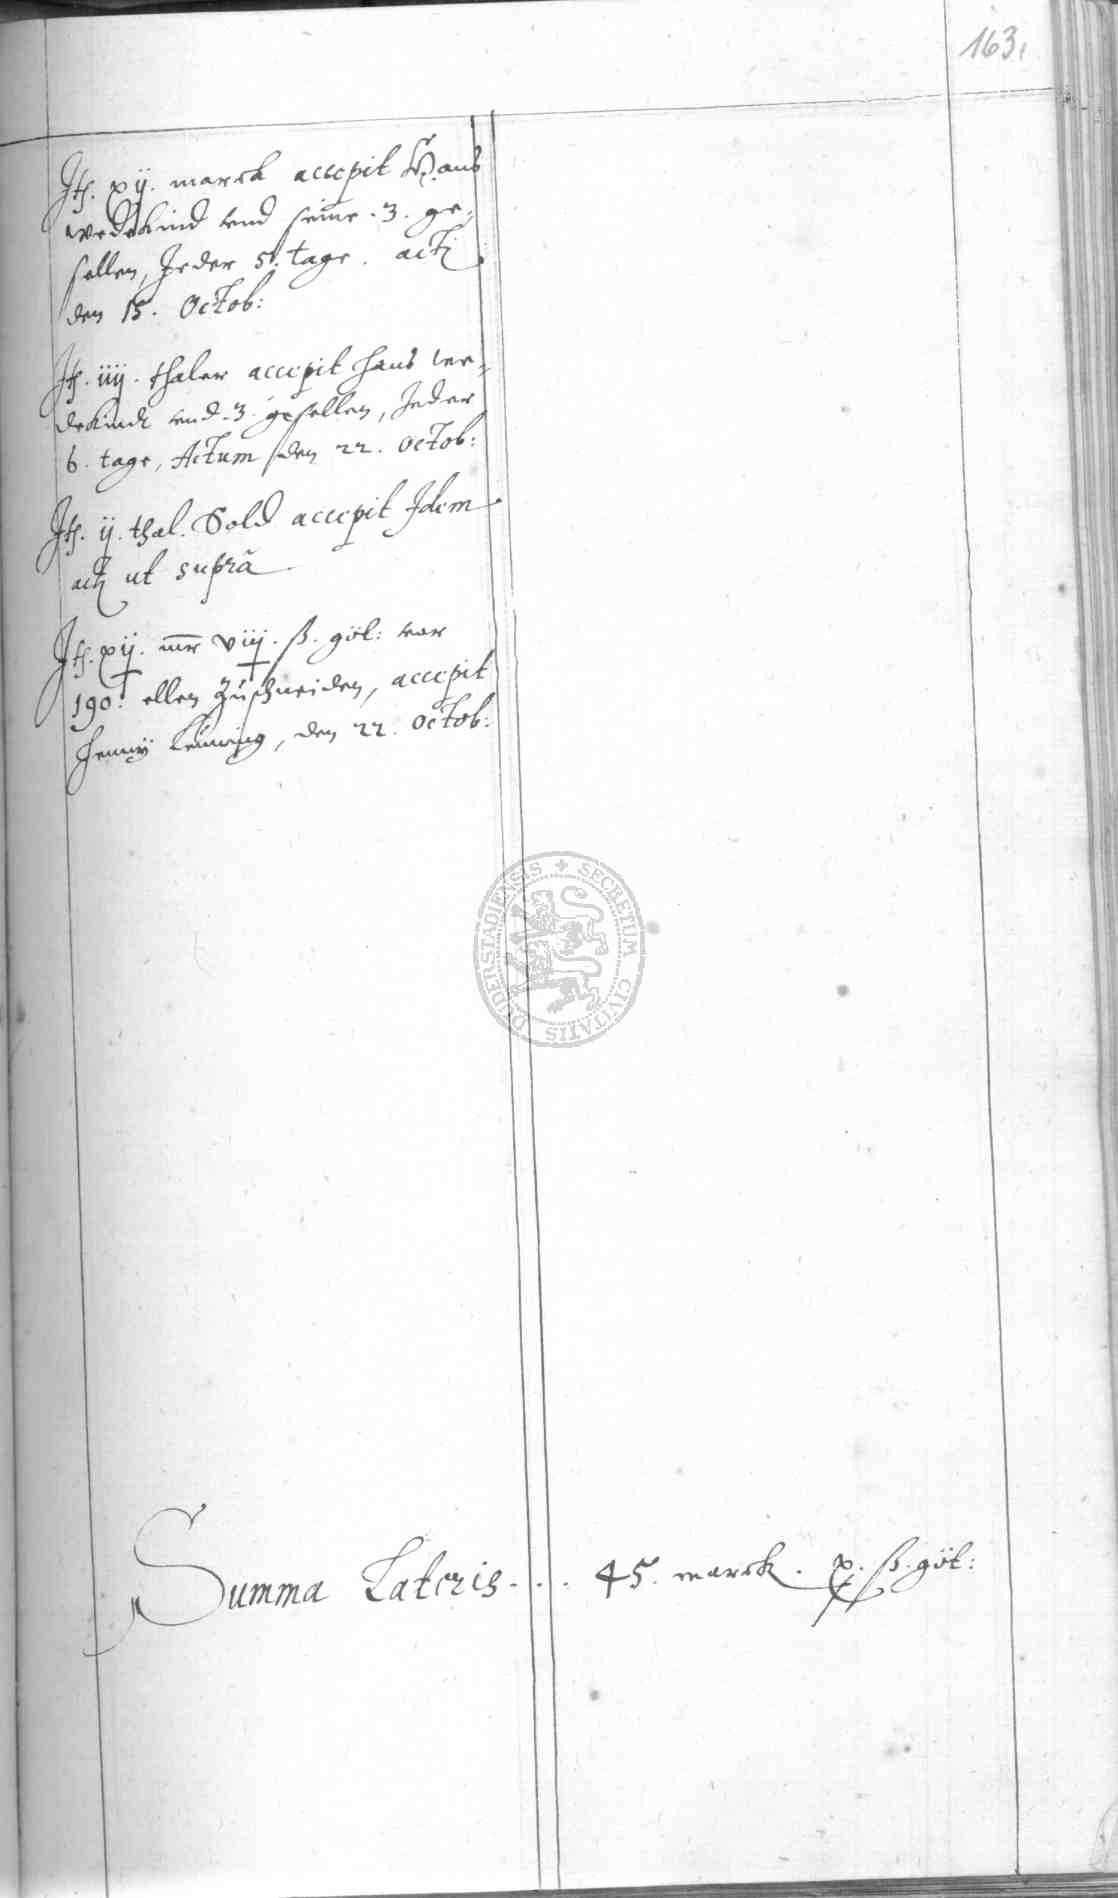 163.
Jtẽ. xij. marck accepit Hans
wedekind vnd seine .3. ge-
sellen, Jeder 5. tage. actũ
den 15. Octob:
Jtẽ. iiij. thaler accepit Hans we-
dekindt vnd .3. gesellen, Jeder
6. tage, Actum den 22. Octob:
Jtẽ. ij. thal. Sold accepit Jdem
actũ ut suprà
Jtẽ. xij. mr viij. ß. göt: vor
190. ellen zuschneiden, accepit
Henny, den 22. Octob:
SECRETUM CIVITATIS DUDERSTADIENSIS
Summa Lateris . . . 45. marck. x. ß. göt: